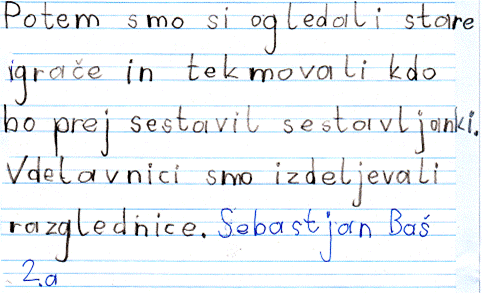 Potem smo si ogledali stare
igrače in tekmovali kdo
bo prej sestavil sestavljanki.
Vdelavnici smo izdeljevali
razglednice. Sebastjan Baš
2.a